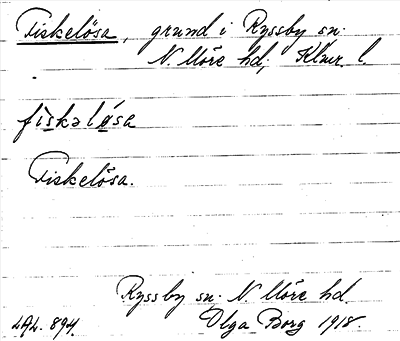 Fiskelösa, grund i Ryssby sn.
N. Möre hd, Kalmar l.
fiskəlǿsa
Fiskelösa.
Ryssby sn. N. Möre hd.
LAL. 894. Olga Borg 1918.